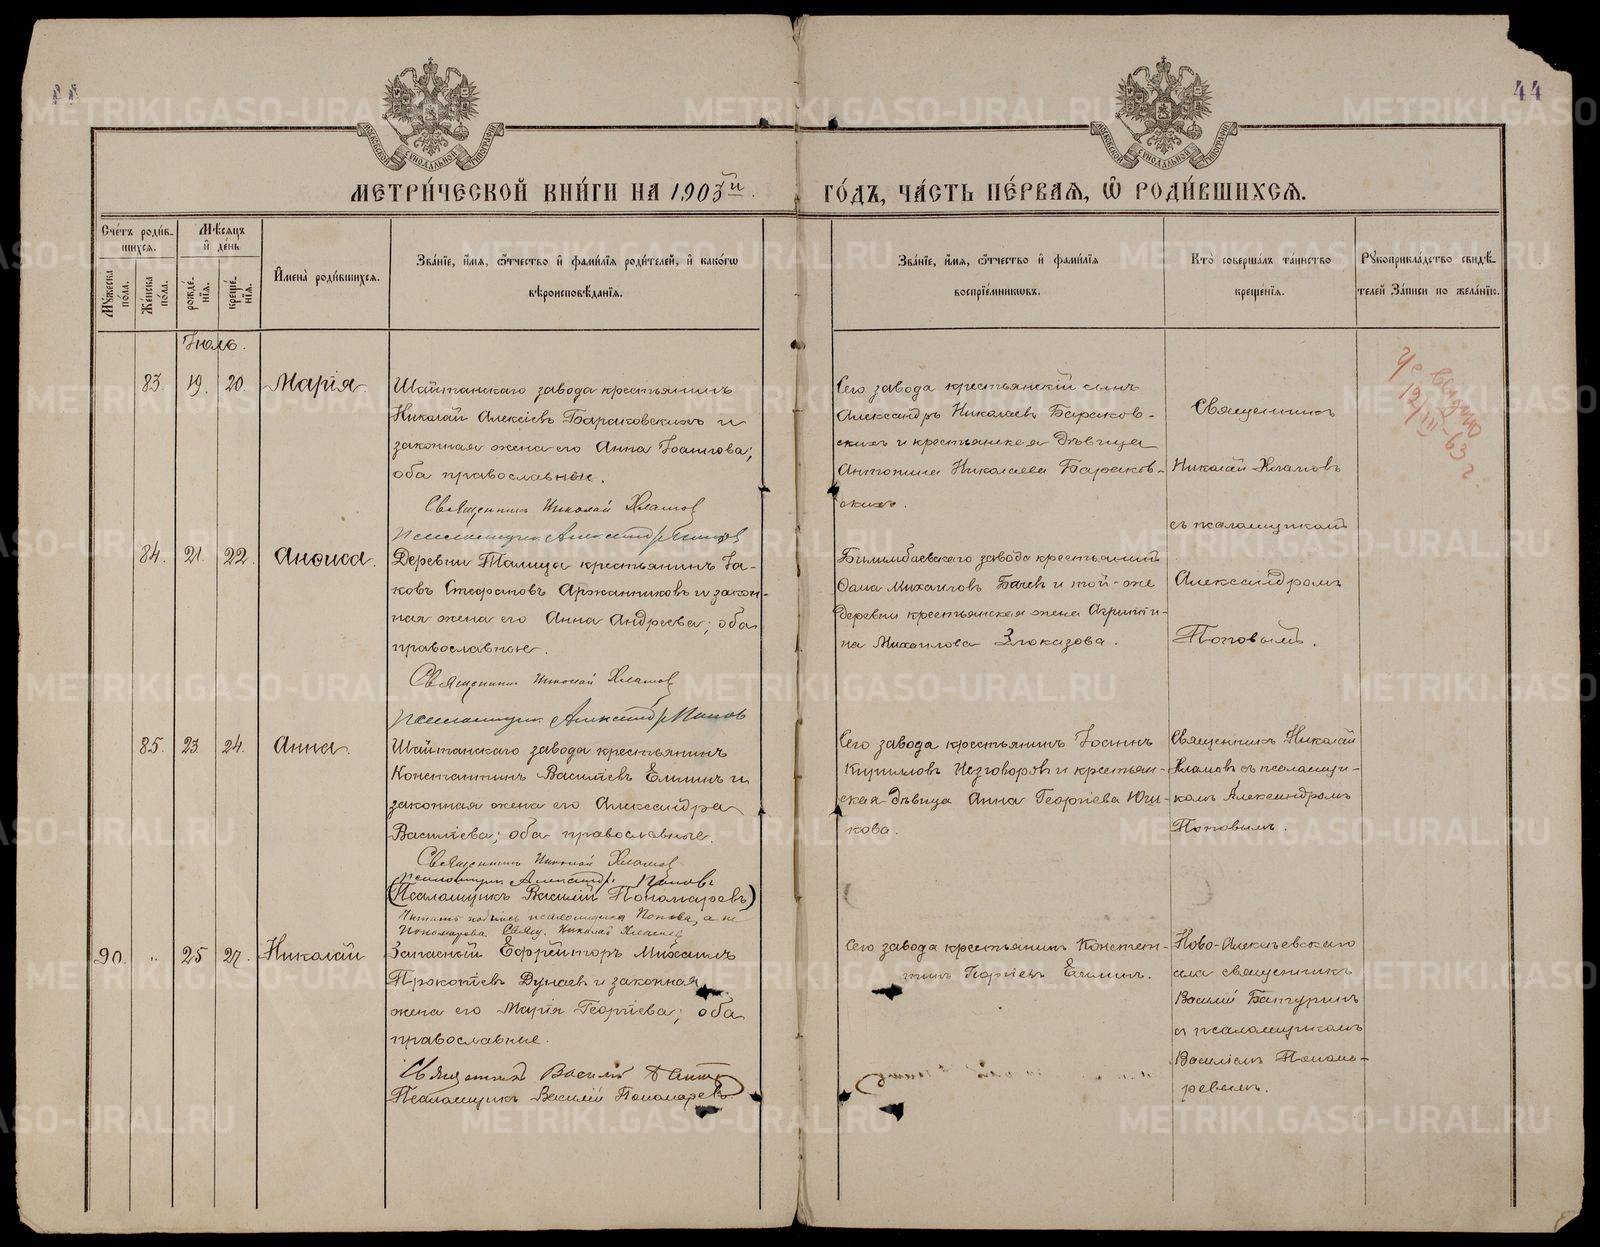 44
44
МОСКОВСКОЙ СѴНОДАЛЬНОЙ ТИПОГРАФІИ
МОСКОВСКОЙ СѴНОДАЛЬНОЙ ТИПОГРАФІИ
МЕТРИ́ЧЕСКОЙ КНИ́ГИ НА 1903й. ГО́ДЪ, ЧА́СТЬ ПЕ́РВАЯ, Ѿ РОДИ́ВШИХСЯ.
Сче́тъ роди́в-
шихся.
Му́жеска по́ла.
Же́нска по́ла.
Мѣ́сяцъ
и҆ де́нь
рожде́-
нїя.
креще́-
нїя.
И҆мена̀ роди́вшихся.
Зва́нїе, и҆́мя, ѻ҆́тчество и҆ фами́лїя роди́телей, и҆ како́гѡ
вѣроисповѣ́данїя.
Зва́нїе, и҆́мя, ѻ҆́тчество и҆ фами́лїя
воспрїе́мниковъ.
Кто̀ соверша́лъ та́инство
креще́нїя.
Рꙋкоприкла́дство свидѣ́-
телей За́писи по жела́нїю.
Іюль.
83. 19. 20. Марія.
Шайтанскаго завода крестьянинъ
Николай Алексіевъ Бараковскихъ и
законная жена его Анна Іоаннова;
оба православные.
Священникъ Николай Хламов
Псаломщик Александр Попов
Сего завода крестьянскій сынъ
Александръ Николаевъ Бараков-
скихъ и крестьянская дѣвица
Антонина Николаева Бараков-
скихъ.
Священникъ
Николай Хламовъ
съ псаломщикомъ
Александромъ
Поповымъ.
84. 21. 22. Анфиса.
Деревни Талица крестьянинъ Іа-
ковъ Стефановъ Аржанниковъ и закон-
ная жена его Анна Андреева; оба
православные.
Священникъ Николай Хламов
Псаломщик Александр Попов
Билимбаевскаго завода крестьянинъ
Михаиловъ Бачев и той-же
деревни крестьянская жена Агриппи-
на Михаилова Злоказова.
85. 23. 24. Анна.
Шайтанскаго завода крестьянинъ
Константинъ Василіевъ Елшинъ и
законная жена его Александра
Василіева; оба православные.
Священник Николай Хламов
псаломщик Александръ Поповъ
(Псаломщикъ Василій Пономаревъ)
Читать подпись псаломщика Попова, а не
Пономарева. Свящ. Николай Хламов
Сего завода крестьянинъ Іоаннъ
Кирилловъ Незговоровъ и крестьян-
ская дѣвица Анна Георгіева Юши-
кова.
Священникъ Николай
Хламовъ съ псаломщи-
комъ Александромъ
Поповымъ.
90. " 25 27. Николай
Запасный Ефрейторъ Михаилъ
Прокопіевъ Дунаевъ и законная
жена его Марія Георгіева; оба
православные.
Священникъ Василій
Псаломщикъ Василій Пономаревъ
Сего завода крестьянинъ Констан-
тинъ Георгіевъ Елшинъ.
Ново-Алексѣевскаго
села священникъ
Василій Батуринъ
съ псаломщикомъ
Василіемъ Понома-
ревымъ.
12/III-63 г.